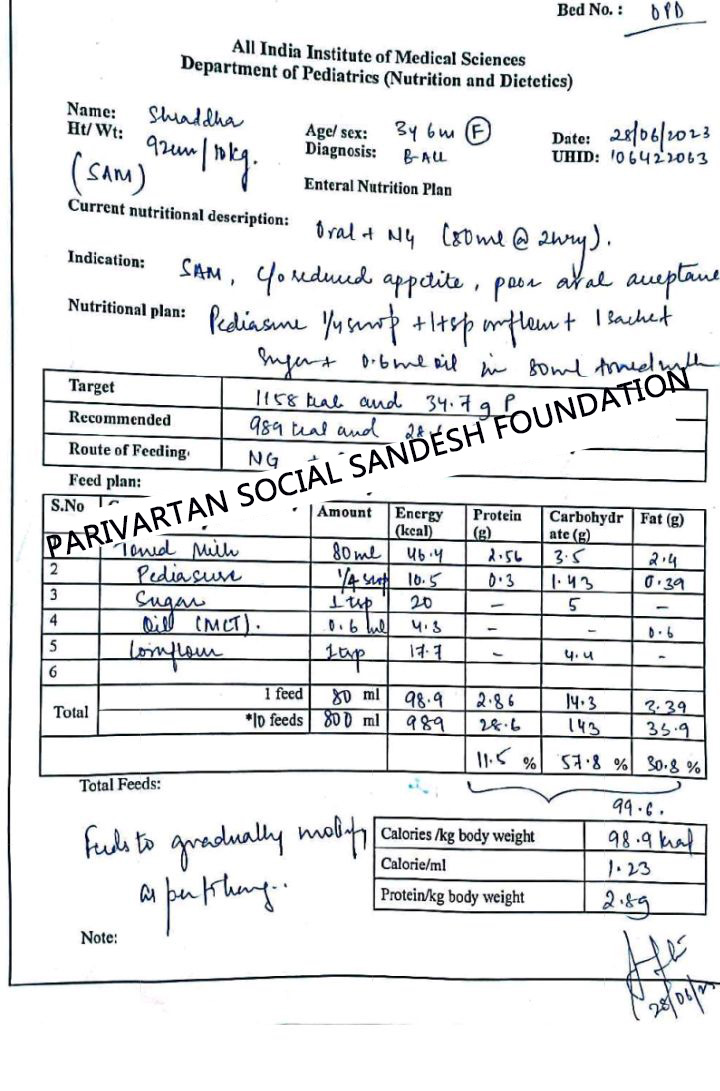 Bed No. : OPD
All India Institute of Medical Sciences
Department of Pediatrics (Nutrition and Dietetics)
Name: Shraddha
Ht/ Wt: 92cm/10kg.
(SAM)
Age/ sex: 3y 6m (F)
Diagnosis: B-ALL
Date: 28/06/2023
UHID: 106422063
Enteral Nutrition Plan
Current nutritional description: Oral + NG (80ml @ 2hrly).
Indication: SAM, c/o reduced appetite, poor oral acceptance
Nutritional plan: Pediasure 1/4 scoop + 1 tsp cornflour + 1 sachet
Sugar + 0.6 ml oil in 80ml toned milk
Target 1158 kcal and 34.7 g P
Recommended 989 kcal and 28.6
Route of Feeding: NG
PARIVARTAN SOCIAL SANDESH FOUNDATION
Feed plan:
S.No Amount Energy (kcal) Protein (g) Carbohydrate (g) Fat (g)
Toned Milk 80ml 46.4 2.56 3.5 2.4
2 Pediasure 1/4 scoop 10.5 0.3 1.43 0.39
3 Sugar 1 tsp 20 – 5 –
4 Oil (MCT). 0.6 ml 4.3 – – 0.6
5 Cornflour 1 tsp 17.7 – 4.4 –
6
Total 1 feed 80 ml 98.9 2.86 14.3 3.39
*10 feeds 800 ml 989 28.6 143 33.9
11.5 % 57.8 % 30.8 %
Total Feeds:
99.6.
Feeds to gradually modify
as per
Calories /kg body weight 98.9 kcal
Calorie/ml 1.23
Protein/kg body weight 2.8g
Note:
28/06/23